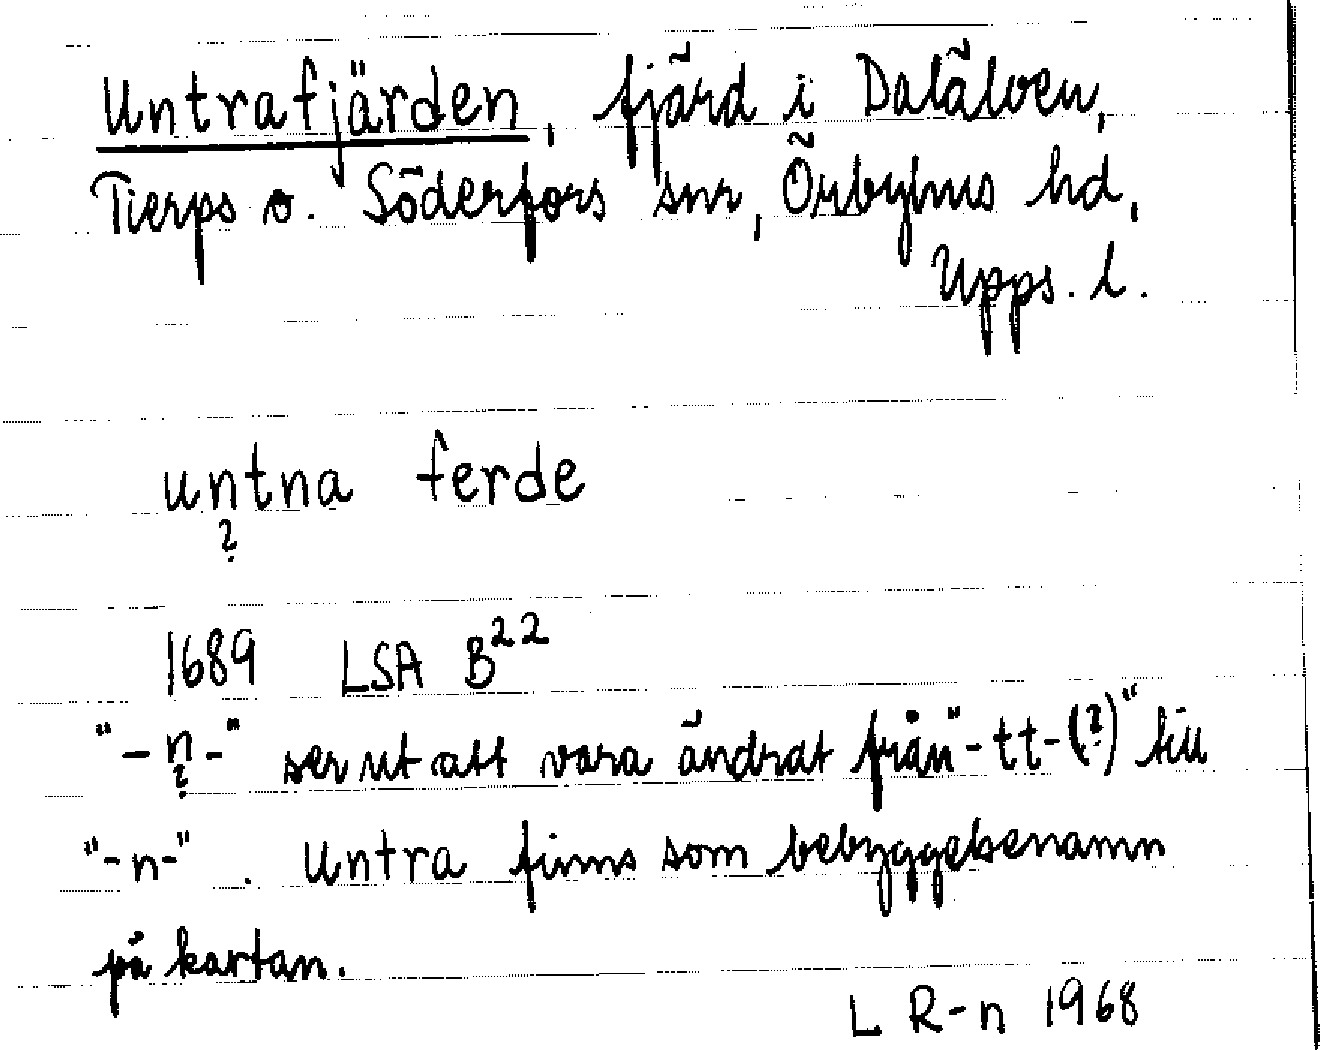 Untrafjärden, fjärd i Dalälven,
Tierps o. Söderfors snr, Örbyhus hd,
Upps. l.
untna ferde
?
1689 LSA B²²
"-n-" ser ut att vara ändrat från "-tt-(?)" till
?
"-n-". Untra finns som bebyggelsenamn
på kartan.
L R-n 1968